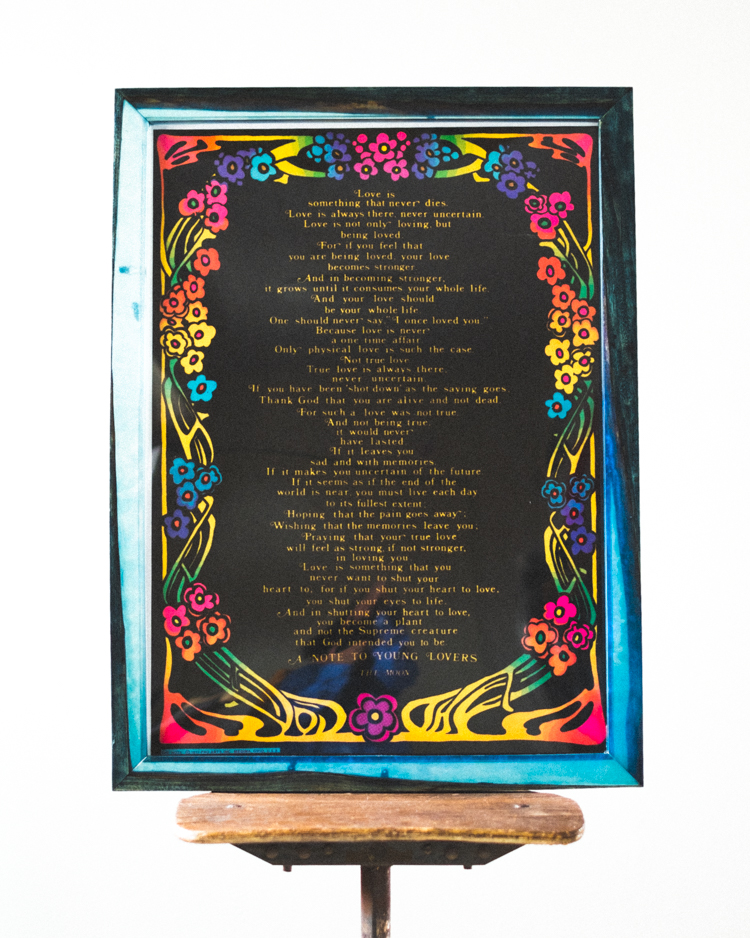 Love is
something that never dies.
Love is always there, never uncertain.
Love is not only loving, but
being loved.
For if you feel that
you are being loved, your love
becomes stronger.
And in becoming stronger,
it grows until it consumes your whole life.
And your love should
be your whole life.
One should never say, "I once loved you."
Because love is never
a one time affair.
Only physical love is such the case
Not true love.
True love is always there,
never uncertain.
If you have been 'shot down' as the saying goes,
Thank God that you are alive and not dead.
For such a love was not true.
And not being true,
it would never
have lasted.
If it leaves you
sad and with memories,
If it makes you uncertain of the future
If it seems as if the end of the
world is near, you must live each day
to its fullest extent;
Hoping that the pain goes away;
Wishing that the memories leave you;
Praying that your true love
will feel as strong, if not stronger,
in loving you.
Love is something that you
never want to shut your
heart to, for if you shut your heart to love,
you shut your eyes to life.
And in shutting your heart to love,
you become a plant
and not the Supreme creature
that God intended you to be.
A NOTE TO YOUNG LOVERS
THE MOON